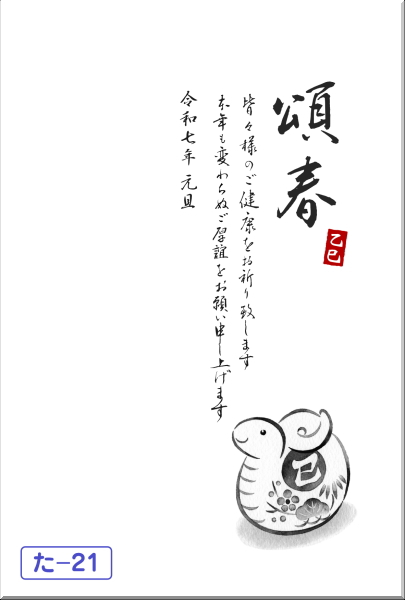 頌春
乙巳
皆々様のご健康をお祈り致します
本年も変わらぬご厚誼をお願い申し上げます
令和七年 元旦
巳
た−21